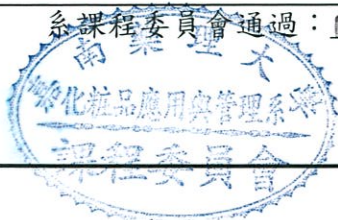 系課程委員會通過：
南藥理大
化粧品應用與管理系
課程委員會